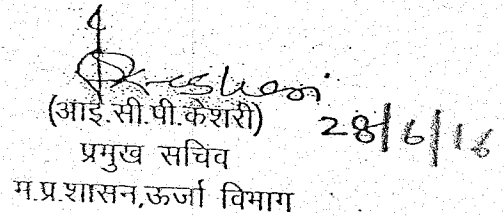 (आई.सी.पी.केशरी) 28/6/16
प्रमुख सचिव
म.प्र.शासन,ऊर्जा विभाग